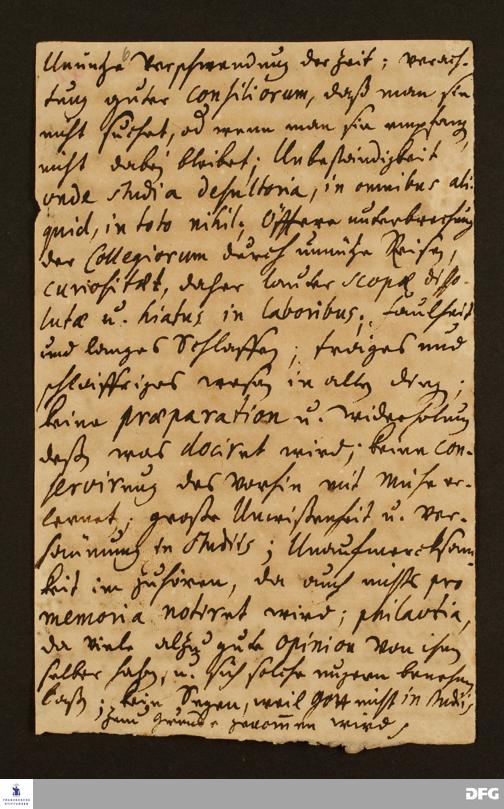 Unnütze Verschwendung der Zeit; verach-
tung guter Consiliorum, daß man sie
nicht suchet, od wenn man sie empfang
nicht dabey bleibet; Unbeständigkeit
unde studia desultoria, in omnibus ali-
quid, in toto nihil. Öfftere unterbrechung
der Collegiorum durch unnütze Reisen,
curiositæt, daher lauter scopæ disso-
lutæ u. hiatus in laboribus; faulheit
und langes Schlaffen; träges und
schläffriges wesen in allen ding;
keine præparation u. widerholung
deß was docirt wird; keine con-
servirung des vorhin mit Mühe er-
lernet; große Unwißenheit u. ver-
säumung in Studiis; Unaufmercksam-
keit im zuhören, da auch nichts pro
memoria notirt wird; philavtia,
da viele alzu gute opinion von ihm
selber haben, u. sich solche ungern benehmen
laß; kein Segen, weil Gott nicht in studiis
zum Grunde genommen wird.
FRANCKESCHE STIFTUNGEN
DFG